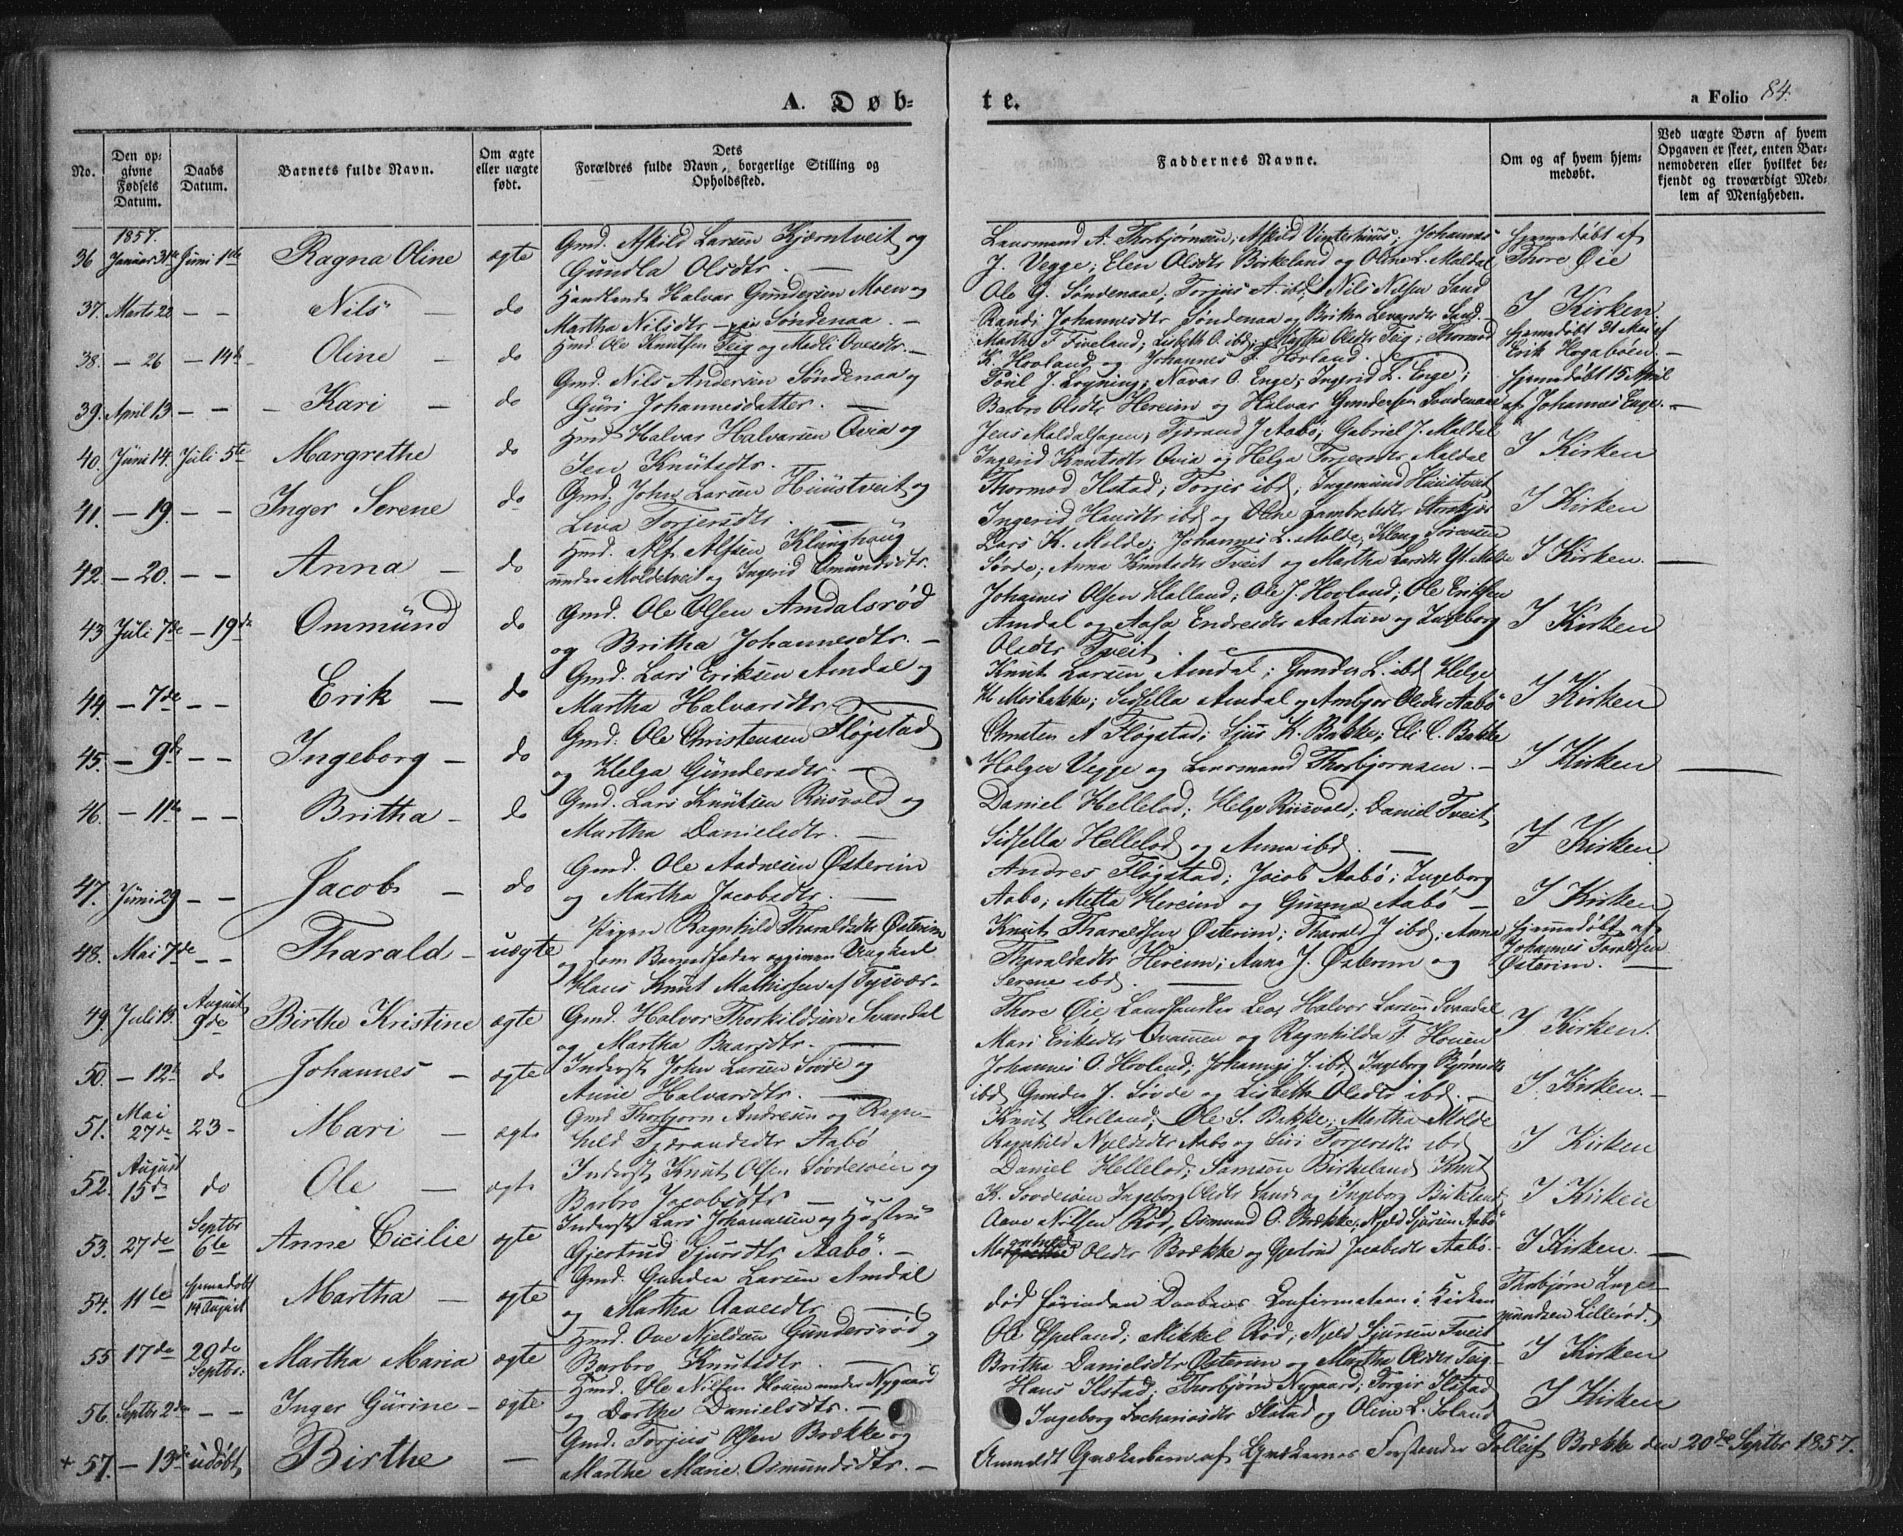 A. Døb-
te.
a Folio 84.
No.
Den op-
givne
Fødsels
Datum.
Daabs
Datum.
Barnets fulde Navn.
Om ægte
eller uægte
født.
Dets
Forældres fulde Navn, borgerlige Stilling og
Opholdssted.
Faddernes Navne.
Om og af hvem hjem-
medøbt.
Ved uægte Børn af hvem
Opgaven er skeet, enten Bar-
nemoderen eller hvilket be-
kjendt og troværdigt Med-
lem af Menigheden.
1857.
36 Januar 31te Juni 1ste Ragna Oline ægte
Gmd. Askild Larsen Kjærntveit og
Gundla Olsdtr. —
Lensmand A. Thorbjørnsen; Askild Vinterhuus; Johannes
J. Vegge; Elen Olsdtr Birkeland og Oline L. Maldal
Hjemmedøbt af
Thore Øie
37. Marts 22 — — Nils — do
Huusmand Halvar Gundersen Moen og
Martha Nilsdtr — Søndenaa. —
Ole G. Søndenaa; Torjus A. ibd; Nils Nilsen Sand
Randi Johannesdtr Søndenaa og Britha Sand. —
I Kirken.
38. — 26 — 14de Oline — do
Hmd Ole Knutsen Teig og Madli Ovesdtr. —
Martha T Fiveland; Lisbeth O. ibd; Martha Olsdtr Teig; Thormod
K. Hovland og Johannes T. Hovland.
Hjemmedøbt 31 Mai af
Erik Hogabøen. —
39. April 13. — — Kari — do
Gmd. Nils Andersen Søndenaa og
Guri Johannesdatter. —
Toril J. Løyning; Navas O. Enge; Ingerid L. Enge;
Barbro Olsdtr Hereim og Halvar Gundersen Søndenaa
Hjemmedøbt 15 April
af Johannes Enge. —
40. Juni 14. Juli 5te Margrethe do
Hmd. Halvar Halvarsen Ovia og
Sen Knutsdtr.
Jens Maldalshagen; Tjærand J. Aabø; Gabriel J. Maldal
Ingerid Knutsdtr Ovia og Helga Torjersdtr Maldal
I Kirken
41. — 19. — — Inger Serene do
Gmd. John Larsen Huustveit og
Liva Torjersdtr. —
Thormod Ilstad; Torjer ibd; Ingemund Huustveit
Ingerid Hansdtr ibd og Olene Lambrektsdtr
I Kirken
42. — 20. — — Anna — do
Hmd. Alf Alfsen Klunghaug
under Moldetveit og Ingerid Omundsdtr.
Lars K. Molde; Johannes L. Molde; Sørensen
Søvde; Anna Knutsdtr Tveit og Martha Larsdtr Molde
I Kirken. —
43 Juli 7de — 19de Ommund do
Gmd. Ole Olsen Amdalsrød
og Britha Johannesdtr. —
Johannes Olsen Halland; Ole J. Hovland; Ole Eriksen
Amdal og Aasa Endresdtr Aartun og Ingeborg
Olsdtr Tveit.
I Kirken
44. — 7de — — Erik — do
Gmd. Lars Eriksen Amdal og
Martha Halvarsdtr. —
Knut Larsen Amdal; Gunder L. ibd Helge
H Mosbakke; Sidsella Amdal og Ambjør Olsdtr Aabø
I Kirken
45. — 9de — — Ingeborg — do
Gmd. Ole Christensen Fløgstad
og Helga Gundersdtr. —
Christen A Fløgstad; Sjur K. Bakke; Eli O. Bakke
Holger Vegge og Lensmand Thorbjørnsen. —
I Kirken
46. — 11te — — Britha — do
Gmd. Lars Knutsen Riisvold og
Martha Danielsdtr. —
Daniel Hellelod; Helge Riisvold; Daniel Tveit,
Sidsella Hellelod og Anna ibd. —
I Kirken
47. Juni 29 — — Jacob — do
Gmd. Ole Aadnesen Østerim
og Martha Jacobsdtr. —
Andres Fløgstad; Jacob Aabø; Ingeborg
Aabø; Metta Hereim og Gunna Aabø —
I Kirken
48. Mai 7de — — Tharald — uægte
Pigen Ragnhild Tharaldsdtr Østerim
og som Barnefader opgiven Ungkarl
Hans Knut Mathissen af Tysvær. —
Knut Tharaldsen Østerim; Tharald J ibd; Anna
Tharaldsdtr Hereim; Anna J. Østerim og
Serene ibd. —
Hjemmedøbt af
Johannes Taraldsen
Østerim. —
49. Juli 13. August 9de Birthe Kristine ægte
Gmd. Halvor Thorkildsen Svandal
og Martha Baarsdtr. —
Thore Øie, Halvor Larsen Svandal
Mari Eriksdtr Qvamen og Ragnhilda T. Houen
I Kirken.
50. — 12te do Johannes — ægte
Inderst John Larsen Søvde og
Anne Halvarsdtr. —
Johannes O. Hovland; Johannes J. ibd; Ingeborg Bjørnsdtr
ibd, Gunder J. Søvde og Lisbeth Olsdtr ibd. —
I Kirken. —
51. Mai 27de 23 — Mari — ægte
Gmd Thorbjørn Andresen og Ragn-
hild Tjerandsdtr Aabø
Knut Holland, Ole S. Bakke; Martha Molde
Ragnhild Njeldsdtr Aabø og Siri Torjersdtr ibd
I Kirken
52. August 15de do Ole — ægte
Inderst Knut Olsen Søvdesøen og
Barbro Jacobsdtr —
Daniel Hellelod; Samson Birkeland; Knut
K. Søvdesøen Ingeborg Olsdtr Sand og Ingeborg Birkeland
I Kirken
53. 27de Septbr 6te Anne Cicilie ægte
Inderst Lars Johannesen og Hustru
Gjertrud Sjursdtr Aabø. —
Aave Nilsen Rød, Osmund O. Brække, Njeld Sjursen Aabø
Magnhild Olsdtr Brække og Gjertrud Jacobsdtr Aabø. —
I Kirken. —
54. 11te Hjemmedøbt 14 August Martha — ægte
Gmd. Gunder Larsen Amdal
og Martha Aavesdtr —
død førinden Daabens Confirmation i Kirken
Thorbjørn Inge-
mundsen Lillerød.
55 17de 20de Septbr: Martha Maria ægte
Hmd. Ove Njeldsen Gundersrød og
Barbro Knutsdtr. —
Ole Espeland; Mikkel Rød; Njeld Sjursen Tveit
Britha Danielsdtr Østerim og Martha Olsdtr Teig —
I Kirken
56. Septbr 2den — — Inger Gurine — ægte
Hmd. Ole Nilsen Houen under Nygaard
og Dorthe Danielsdtr. —
Hans Ilstad; Thorbjørn Nygaard; Torgir Ilstad
Ingeborg Zachariasdtr Ilstad og Oline L. Soland
I Kirken
+ 57. — 13de udøbt Birthe —
Gmd. Torjus Olsen Brække og
Marthe Marie Osmundsdtr. —
Anmeldt Qvækerbarn af Qvækernes Forstander Tolleif Brække den 20de Septbr 1857.